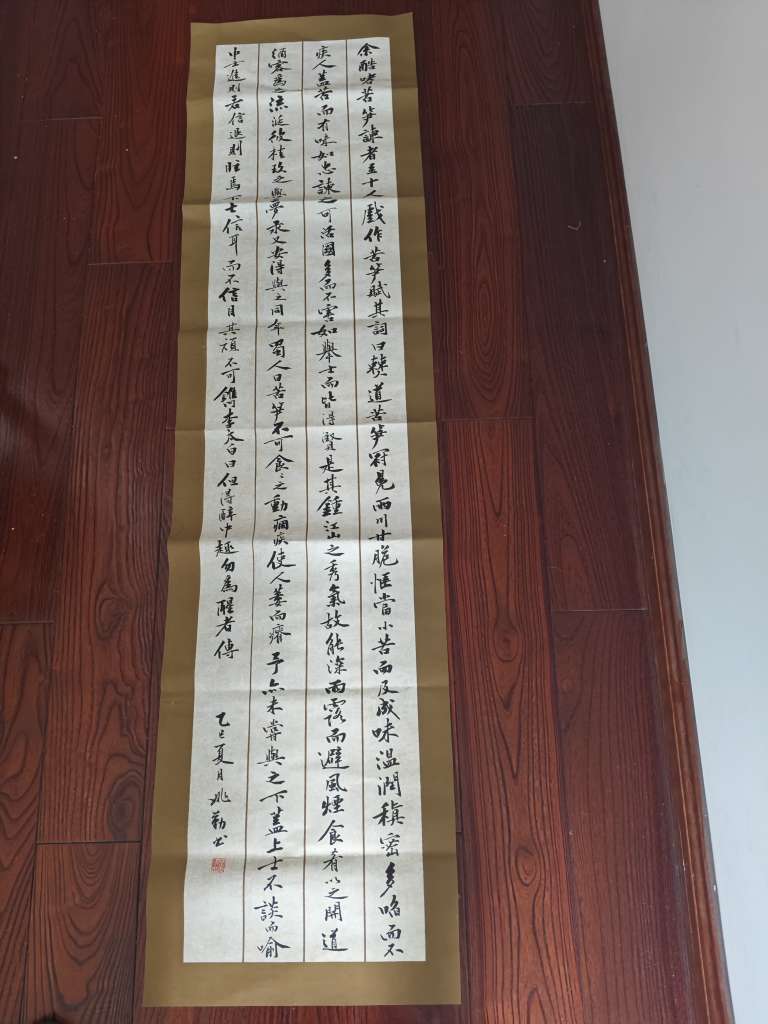 余酷嗜苦笋諫者至十人戲作苦笋賦其詞曰僰道苦笋冠冕兩川甘脆愜當小苦而反成味溫潤稹密多啗而不
疾人蓋苦而有味如忠諫之可活國多而不害如舉士而皆得賢是其鍾江山之秀氣故能深雨露而避風煙食肴以之開道
酒客為之流涎彼桂玫之與夢永又安得與之同年蜀人曰苦笋不可食〻之動痼疾使人萎而瘠予亦未嘗與之下蓋上士不談而喻
中士進則若信退則眩焉下士信耳而不信目其頑不可鐫李太白曰但得醉中趣勿為醒者傳
乙巳夏月姚勤书